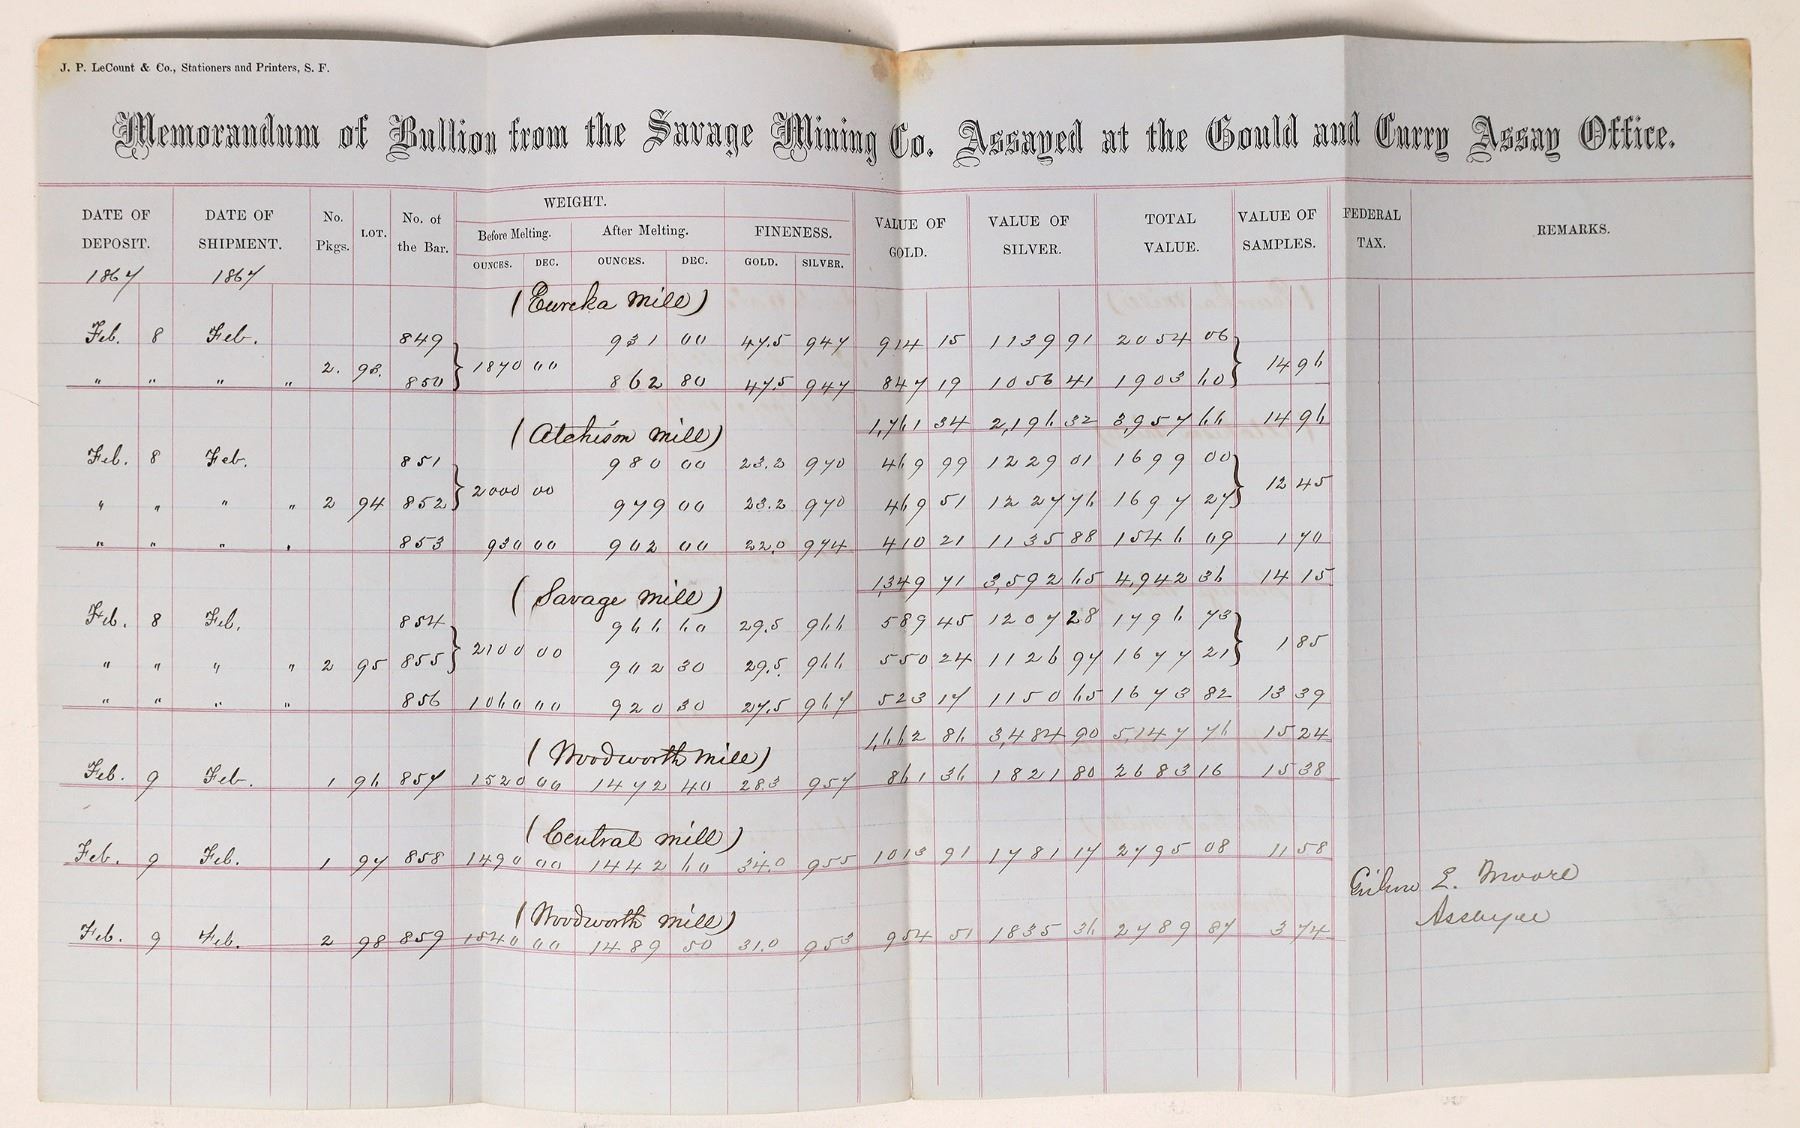 J. P. LeCount & Co., Stationers and Printers, S. F.
Memorandum of Bullion from the Savage Mining Co. Assayed at the Gould and Curry Assay Office.
DATE OF DEPOSIT. DATE OF SHIPMENT. No. Pkgs. LOT. No. of the Bar. WEIGHT. FINENESS. VALUE OF GOLD. VALUE OF SILVER. TOTAL VALUE. VALUE OF SAMPLES. FEDERAL TAX. REMARKS.
Before Melting. After Melting.
OUNCES. DEC. OUNCES. DEC. GOLD. SILVER.
1867 1867
(Eureka Mill)
Feb. 8 Feb. 849 931 00 47.5 947 914 15 1139 91 2054 06
2. 93. 1870 00 14 96
" " " " 850 862 80 47.5 947 847 19 1056 41 1903 60
1,761 34 2,196 32 3,957 66 14 96
(Atchison Mill)
Feb. 8 Feb. 851 980 00 23.2 970 469 99 1229 01 1699 00
2000 00 12 45
" " " " 2 94 852 979 00 23.2 970 469 51 1227 76 1697 27
" " " " 853 930 00 902 00 22.0 974 410 21 1135 88 1546 09 1 70
1,349 71 3,592 65 4,942 36 14 15
(Savage Mill)
Feb. 8 Feb. 854 966 60 29.5 966 589 45 1207 28 1796 73
2100 00 1 85
" " " " 2 95 855 902 30 29.5 966 550 24 1126 97 1677 21
" " " " 856 1060 00 920 30 27.5 967 523 17 1150 65 1673 82 13 39
1,662 86 3,484 90 5,147 76 15 24
(Woodworth Mill)
Feb. 9 Feb. 1 96 857 1520 00 1472 40 28.3 957 861 36 1821 80 2683 16 15 38
(Central Mill)
Feb. 9 Feb. 1 97 858 1490 00 1442 60 34.0 955 1013 91 1781 17 2795 08 11 58
(Woodworth Mill)
Feb. 9 Feb. 2 98 859 1540 00 1489 50 31.0 953 954 51 1835 36 2789 87 3 74
E. Moore
Assayer